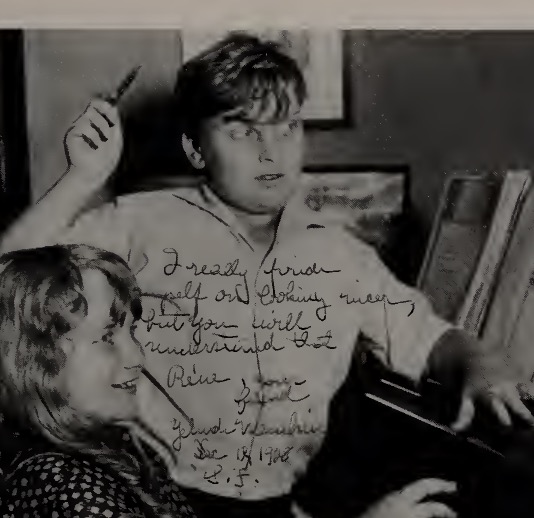 I really pride
self on looking nicer,
but you will
understand that
Réna, your
friend
Yehudi Menuhin
Dec 18, 1928
S.F.